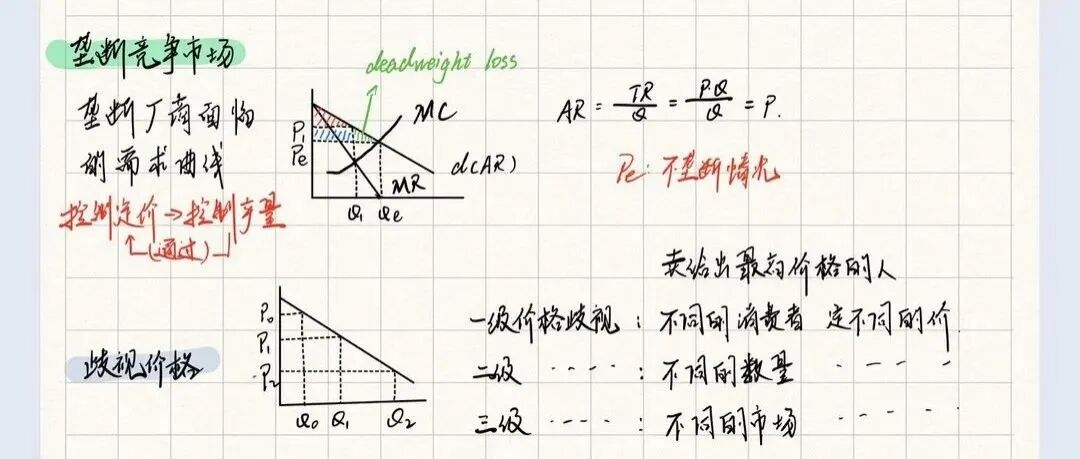 垄断竞争市场
垄断厂商面临
的需求曲线
控制定价→控制产量
(通过)
deadweight loss
P₁
Pe
MC
d(AR)
MR
Q₁ Qe
AR = TR/Q = P·Q/Q = P.
Pe: 不垄断情况
歧视价格
P₀
P₁
P₂
Q₀ Q₁ Q₂
卖给出最高价格的人
一级价格歧视: 不同的消费者 定不同的价.
二级 ‥‥: 不同的数量 ‥‥
三级 ‥‥: 不同的市场 ‥‥